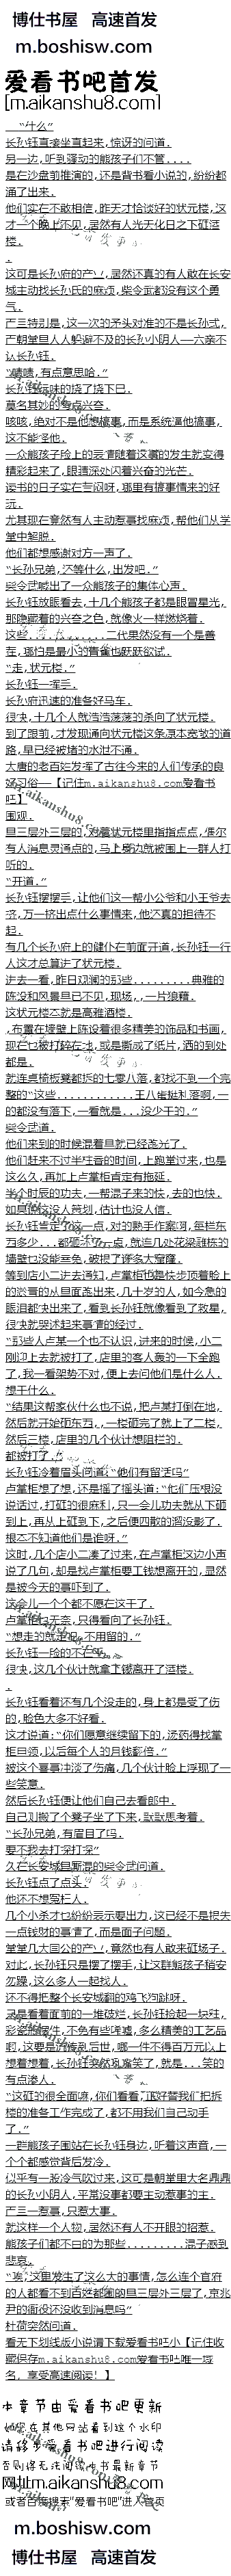 博仕书屋 高速首发
m.boshisw.com
爱看书吧首发
[m.aikanshu8.com]
“什么”
长孙钰直接坐直起来,惊讶的问道.
另一边,听到骚动的熊孩子们不管....
是在沙盘前推演的,还是背书看小说的,纷纷都
涌了出来.
他们实在不敢相信,昨天才恰谈好的状元楼,这
才一个晚上不见,居然有人光天化日之下砸酒
楼.
.
这可是长孙府的产业,居然真的有人敢在长安
城主动找长孙氏的麻烦,柴令武都没有这个勇
气.
产三特别是,这一次的矛头对准的不是长孙式,
产朝堂里人人躲避不及的长孙小阴人一六亲不
认长孙钰.
“啧啧,有点意思哈.”
长孙钰玩味的挠了挠下巴.
莫名其妙的有点兴奋.
咳咳,绝对不是他想搞事,而是系统逼他搞事,
这不能怪他.
一众熊孩子脸上的表情随着这事的发生就变得
精彩起来了,眼睛深处闪着兴奋的光芒.
读书的日子实在苦闷呀,哪里有搞事情来的好
玩.
尤其现在竟然有人主动惹事找麻烦,帮他们从学
堂中解脱.
他们都想感谢对方一声了.
“长孙兄弟,还等什么,出发吧.”
柴令武喊出了一众熊孩子的集体心声.
长孙钰放眼看去,十几个熊孩子都是眼冒星光,
那隐藏着的兴奋之色,就像火一样燃烧着.
这些...........二代果然没有一个是善
茬,哪怕是最小的青雀也跃跃欲试.
“走,状元楼.”
长孙钰一挥手.
长孙府迅速的准备好马车.
很快,十几个人就浩浩荡荡的杀向了状元楼.
到了跟前,才发现通向状元楼这条原本宽敞的道
路,早已经被堵的水泄不通.
大唐的老百姓发挥了古往今来的人们传承的良
好习俗——【记住m.aikanshu8.com爱看书
吧】
围观.
里三层外三层的,对着状元楼里指指点点,偶尔
有人消息灵通点的,马上身边就被围上一群人打
听的.
“开道.”
长孙钰摆摆手,让他们这一帮小公爷和小王爷去
挤,万一挤出点什么事情来,他还真的担待不
起.
有几个长孙府上的健仆在前面开道,长孙钰一行
人这才总算进了状元楼.
进去一看,昨日观澜的那些.........典雅的
陈设和风景早已不见,现场,,一片狼藉.
这状元楼本就是高雅酒楼.
,布置在墙壁上陈设着很多精美的饰品和书画,
现在也被打碎在地,或是撕成了纸片,洒的到处
都是.
就连桌椅板凳都拆的七零八落,都找不到一个完
整的“这些............王八蛋挺利落啊,一
的都没有落下,一看就是...没少干的.”
柴令武道.
他们来到的时候混着里就已经条光了.
他们赶来不过半柱香的时间,上跑堂过来,也是
这么久,再加上卢掌柜肯定有拖延.
半个时辰的功夫,一帮混子来的快,去的也快.
如果说没有人策划,估计也没人信.
长孙钰肯定了这一点,对的熟手作案呵,每栏东
西多少...都差不齐一点,就连几处花梁雕栋的
墙壁也没能幸免,破损了许多大窟窿.
等到店小二进去通知,卢掌柜也是快步顶着脸上
的淤青的从里面走出来,几十岁的人,如今急的
眼泪都快出来了,看到长孙钰就像看到了救星,
很快就哭述起来事情的经过.
“那些人卢某一个也不认识,进来的时候,小二
刚迎上去就被打了,店里的客人轰的一下全跑
了,我一看架势不对,便上去问他们是什么人.
想干什么.
“结果这帮家伙什么也不说,把卢某打倒在地,
然后就开始砸东西,,一楼砸完了就上了二楼,
然后三楼.店里的几个伙计想阻拦的.
都被打了.”
长孙钰冷着眉头问道:“他们有留话吗”
卢掌柜想了想,还是摇了摇头道:“他们压根没
说话过,打砸的很麻利,只一会儿功夫就从下砸
到上,再从上砸到下,之后便四散的溜没影了.
根本不知道他们是谁呀.”
这时,几个店小二凑了过来,在卢掌柜这边小声
说了几句,却是找卢掌柜要工钱想离开的,显然
是被今天的事吓到了.
这会儿一个个都不愿在这干了.
卢掌柜也无奈,只得看向了长孙钰.
“想走的就走吧,不用留的.”
长孙钰一脸的不在乎.
很快,这几个伙计就拿工钱离开了酒楼.
.
长孙钰看着还有几个没走的,身上都是受了伤
的,脸色大多不好看.
这才说道:“你们愿意继续留下的,汤药得找掌
柜申领,以后每个人的月钱翻倍.”
被这个喜事冲淡了伤痛,几个伙计脸上浮现了一
些笑意.
然后长孙钰便让他们自己去看郎中.
自己则搬了个凳子坐了下来,默默思考着.
“长孙兄弟,有眉目了吗.
要不我去打探打探”
久在长安城里厮混的柴令武问道.
长孙钰点了点头.
他还不想冤枉人.
几个小杀才也纷纷表示要出力,这已经不是损失
一点钱财的事情了,而是面子问题.
堂堂几大国公的产业,竟然也有人敢来砸场子.
对此,长孙钰只是摆了摆手,让这群熊孩子稍安
勿躁,这么多人一起找人.
还不得把整个长安城翻的鸡飞狗跳呀.
只是看着面前的一堆破烂,长孙钰捡起一块鞋,
彩瓷画碎片,不免有些唏嘘,多么精美的工艺品
啊,这要是流传到后世,哪一件不得百万元以上
想着想着,长孙钰突然乳喜笑了,就是...笑的
有点渗人.
“这砸的很全面嘛,你们看看,正好替我们把拆
楼的准备工作完成了,都不用我们自己动手
了.”
一群熊孩子围站在长孙钰身边,听着这声音,一
个个都感觉背后发冷.
似乎有一股冷气吹过来,这可是朝堂里大名鼎鼎
的长孙小阴人,平常没事都要主动惹事的主.
产三一惹事,只惹大事.
就这样一个人物,居然还有人不开眼的招惹.
熊孩子们都不由的为那些.........混子感到
悲哀.
“唉,这里发生了这么大的事情,怎么连个官府
的人都看不到百姓都围的里三层外三层了,京兆
尹的衙役还没收到消息吗”
杜荷突然问道.
看无下划线版小说请下载爱看书吧小【记住收
藏保存m.aikanshu8.com爱看书吧唯一域
名，享受高速阅读！】
本章节由爱看书吧更新
如您在其他网站看到这个水印
请移步爱看书吧进行阅读
否则将无法阅读本书最新章节
网址m.aikanshu8.com
或者百度搜索"爱看书吧"进入首页
m.boshisw.com
博仕书屋 高速首发